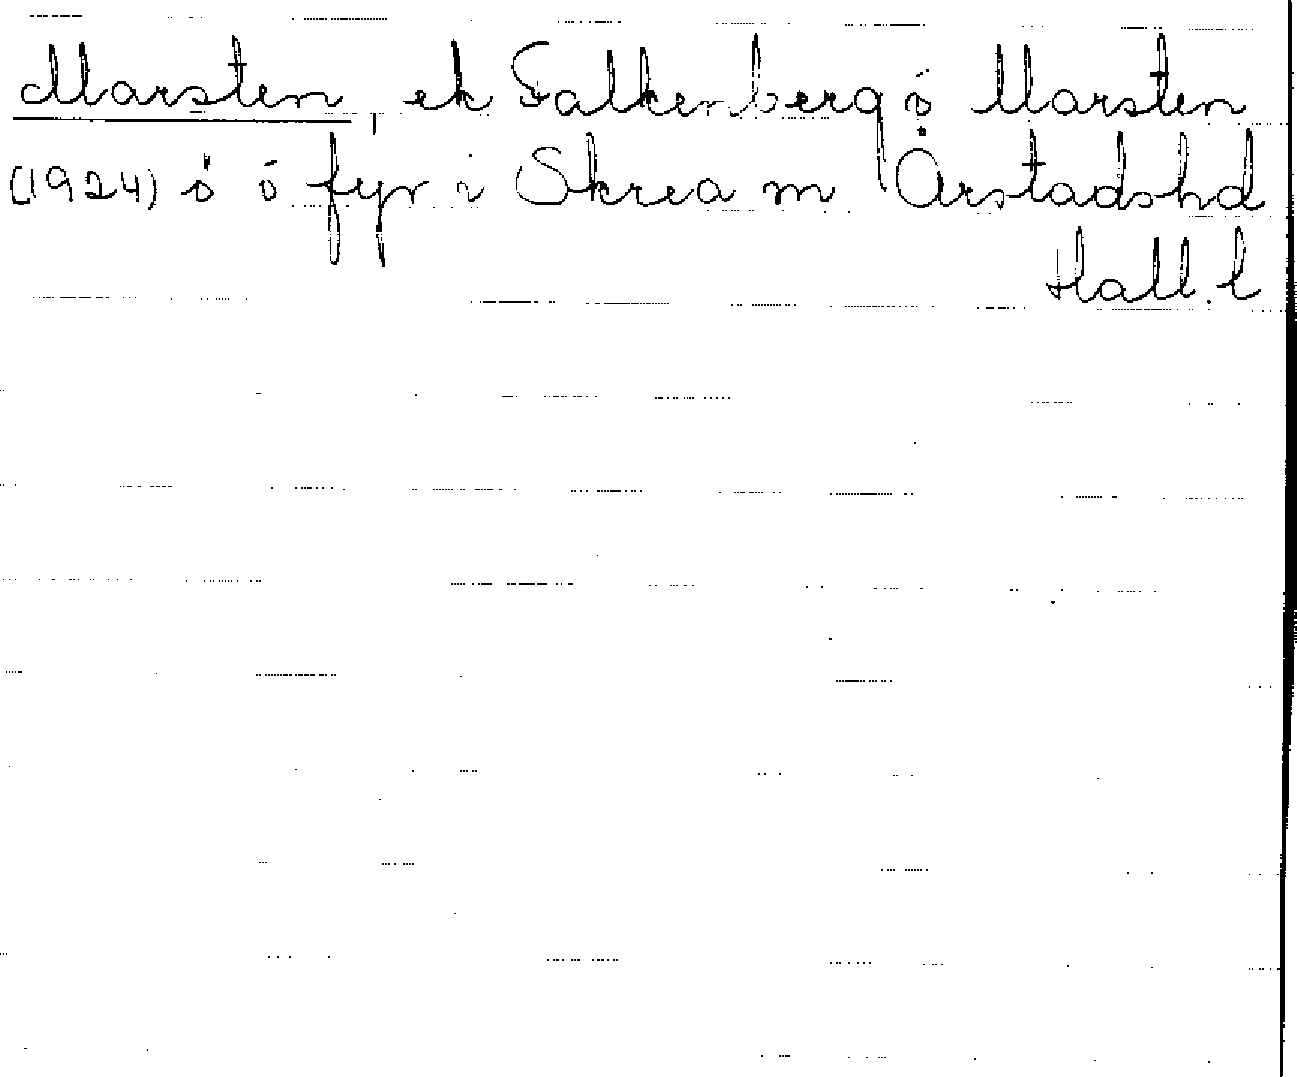 Marsten, ek Falkenberg ö Marsten
(1924) ö ö fyr i Skrea sn Årstadshd
Hall. l